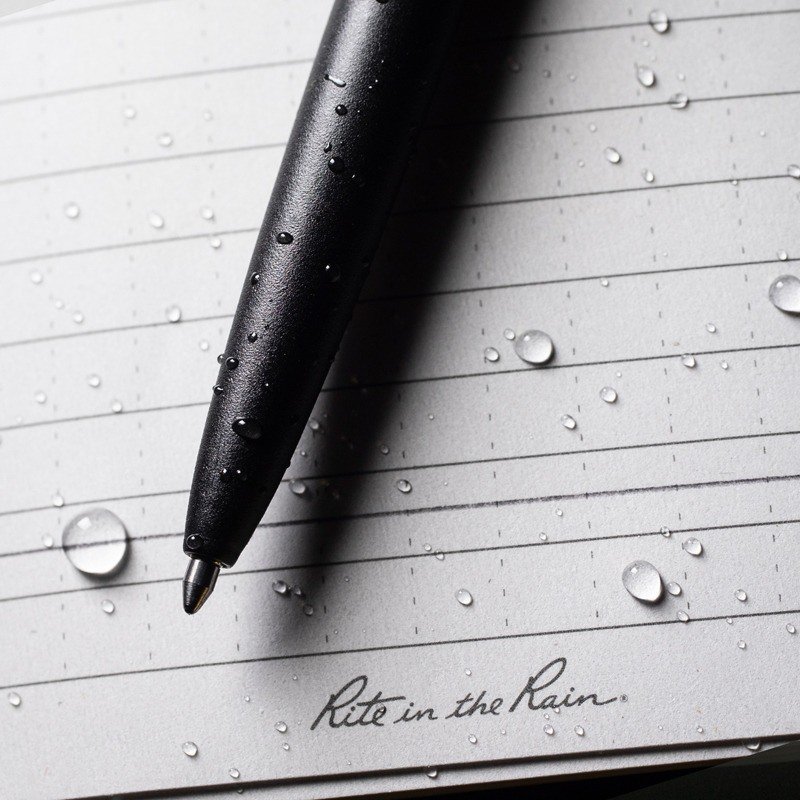 Rite in the Rain®